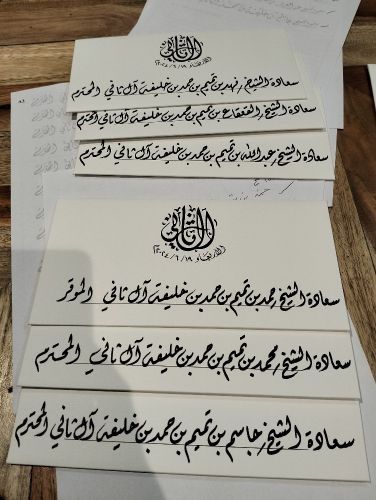 آل ثاني
الأربعاء ٢٠٢٤/٦/١٩
سعادة الشيخ/ فهد بن تميم بن حمد بن خليفة آل ثاني المحترم
سعادة الشيخ/ القعقاع بن تميم بن حمد بن خليفة آل ثاني المحترم
سعادة الشيخ/ عبدالله بن تميم بن حمد بن خليفة آل ثاني المحترم
آل ثاني
الأربعاء ٢٠٢٤/٦/١٩
سعادة الشيخ/ حمد بن تميم بن حمد بن خليفة آل ثاني الموقر
سعادة الشيخ/ محمد بن تميم بن حمد بن خليفة آل ثاني المحترم
سعادة الشيخ/ جاسم بن تميم بن حمد بن خليفة آل ثاني المحترم